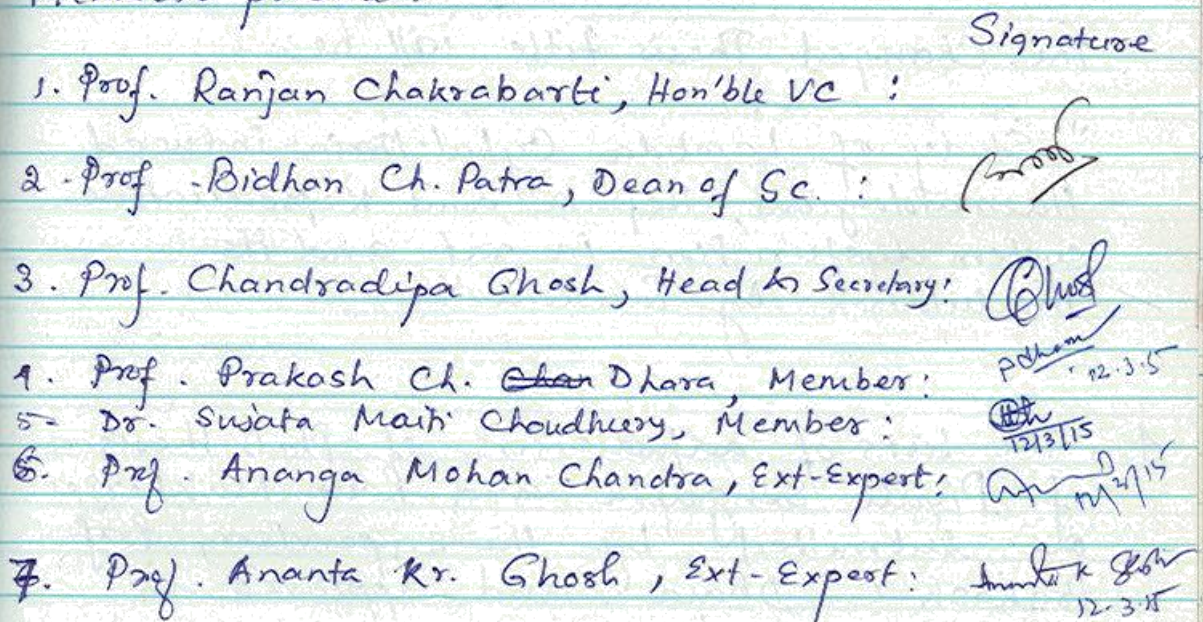 Signature
1. Prof. Ranjan Chakrabarti, Hon'ble VC :
2. Prof. Bidhan Ch. Patra, Dean of Sc. :
3. Prof. Chandradipa Ghosh, Head & Secretary: Ghosh
4. Prof. Prakash Ch. Dhara, Member: 12.3.15
5. Dr. Sujata Maiti Choudhury, Member: 12/3/15
6. Prof. Ananga Mohan Chandra, Ext-Expert:
7. Prof. Ananta Kr. Ghosh, Ext-Expert:
12.3.15